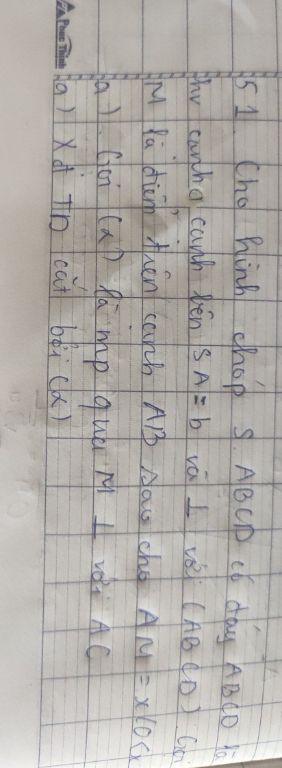 51. Cho hình chóp S.ABCD có đáy ABCD là
hv cạnh a cạnh bên SA=b và ⊥ với (ABCD). Gọi
M là điểm trên cạnh AB sao cho AM = x (0<x
a). Gọi (α) là mp qua M ⊥ với AC
a) Xđ TD cắt bởi (α)
Phuc Thinh